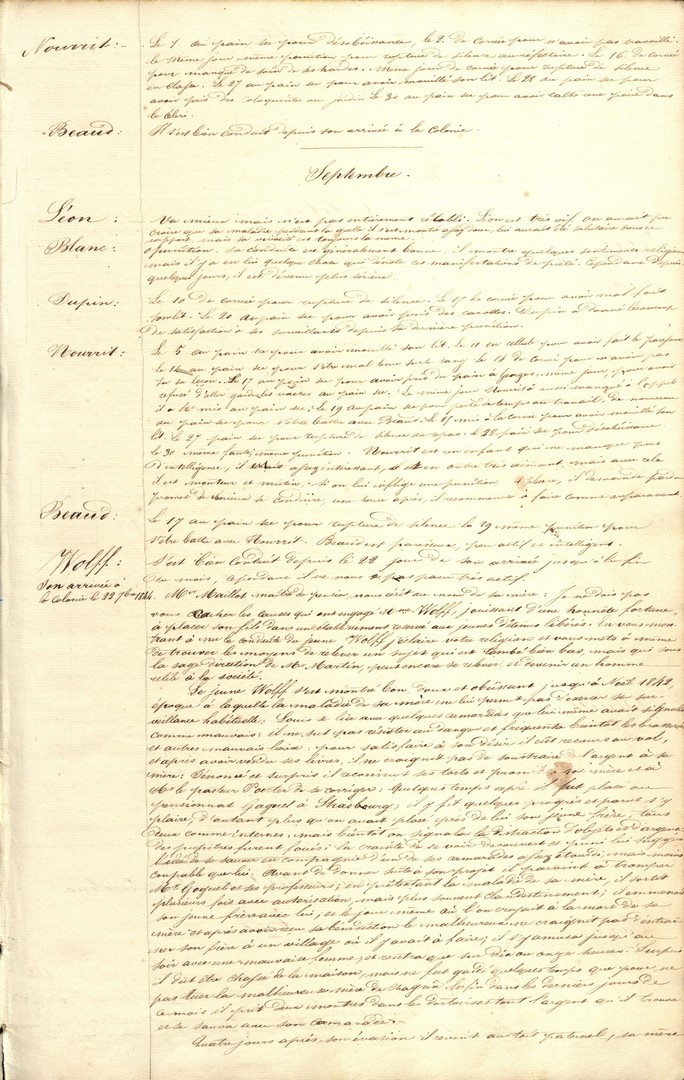 Nourrit: Le 1 au pain sec pour désobéissance, le 2 de corvée pour n'avoir pas travaillé.
le même jour même punition pour rupture de silence au réfectoire. Le 16 de corvée
pour manque de soin de ses hardes. Même jour de corvée pour rupture de silence
en classe. Le 27 au pain sec pour avoir mouillé son lit. Le 28 au pain sec pour
avoir pris des au jardin. Le 30 au pain sec pour avoir taché une paire dans
le
Beaud: Il s'est bien conduit depuis son arrivée à la Colonie.
Septembre.
Léon: Va mieux mais n'est pas entièrement rétabli. Léon est très vif on aurait pu
croire que sa maladie pendant laquelle il s'est montré assez doux, lui aurait été salutaire sous ce
rapport, mais sa vivacité est toujours la même.
Blanc: 1 punition. Sa conduite est généralement bonne, il montre quelques sentiments religieux
mais il y a en lui quelque chose qui ces manifestations de piété. Cependant depuis
quelques jours, il est devenu plus sérieux.
Dupin: Le 10 de corvée pour rupture de silence. Le 15 de corvée pour avoir mal fait
son lit. Le 20 au pain sec pour avoir pris des carottes. Dupin a donné beaucoup
de satisfaction à ses surveillants depuis sa dernière punition.
Nourrit: Le 5 au pain sec pour avoir mouillé son lit. Le 11 en cellule pour avoir fait le
le 14 au pain sec pour s'être mal tenu sur le rang le 16 de corvée pour n'avoir pas
su sa leçon. Le 17 au pain sec pour avoir pris du pain à Gorges, même jour, pour avoir
refusé d'aller garder les vaches au pain sec. Le même jour Nourrit a aussi manqué à l'appel
il a été mis au pain sec; Le 19 au pain sec pour perte de temps au travail; de nouveau
au pain sec pour s'être battu avec Beaud. Le 25 mis à la corvée pour avoir mouillé son
lit. Le 27 pain sec pour rupture de silence au repas. Le 28 pain sec pour désobéissance.
le 30 même faute, même punition. Nourrit est un enfant qui ne manque pas
d'intelligence, il est assez intéressant, il est en outre très aimant, mais avec cela
il est menteur et mutin. Si on lui inflige une punition, il pleure, il demande pardon
promet de mieux se conduire, une heure après, il recommence à faire comme auparavant.
Beaud: Le 17 au pain sec pour rupture de silence le 19 même punition pour
s'être battu avec Nourrit. Beaud est paresseux, peu actif et intelligent.
Wolff: S'est bien conduit depuis le 22 jour de son arrivée jusqu'à la fin
Son arrivée à du mois, cependant il ne nous a pas paru très actif.
la Colonie le 22 7bre 1844. Mr. Maillot maître de pension, nous écrit au nom de sa mère; je ne dois pas
vous cacher les causes qui ont engagé Mme Wolff, jouissant d'une honnête fortune,
à placer son fils dans un établissement réservé aux jeunes détenus libérés. En vous mon-
trant à nu la conduite du jeune Wolff, j'éclaire votre religion et vous mets à même
de trouver les moyens de relever un sujet qui est tombé bien bas, mais qui sous
la sage direction de Mr. Martin, peut encore se relever et devenir un homme
utile à la société.
Le jeune Wolff s'est montré bon, doux et obéissant jusqu'à Noël 1842,
époque à laquelle la maladie de sa mère ne lui permit pas d'exercer sa sur-
veillance habituelle: Louis se lia avec quelques camarades que lui même avait signalés
comme mauvais; il ne sut pas résister au danger et fréquenta bientôt les brasseries
et autres mauvais lieux. pour satisfaire à son désir il eut recours au vol,
et après avoir vendu ses livres, il ne craignit pas de soustraire de l'argent à sa
mère: Dénoncé et surpris il reconnut ses torts et promit à sa mère et à
Mr. le pasteur de se corriger; Quelques temps après, il fut placé au
pensionnat Goguel à Strasbourg, il y fit quelques progrès et parut s'y
plaire, d'autant plus qu'on avait placé près de lui son jeune frère, tous
deux comme internes, mais bientôt on signala la distraction d'objets et d'argent
des pupitres furent fouillés: la crainte de se voir découvert et puni lui suggéra
l'idée de se sauver en compagnie d'un de ses camarades assez étourdi, mais moins
coupable que lui. Avant de donner suite à son projet et parvint à tromper
Mr. Goguel et ses professeurs; en prétextant la maladie de sa mère, il sortit
plusieurs fois avec autorisation, mais plus souvent clandestinement; il emmenait
son jeune frère avec lui; et le jour même où l'on croyait à la mort de sa
mère et après avoir reçu sa bénédiction le malheureux ne craignit pas d'entraî-
ner son frère à un village où il y avait à faire; il s'y amusa jusqu'au
soir avec une mauvaise femme, et rentra que sur dix ou onze heures. Surpris
il dût être chassé de la maison, mais ne fut gardé quelques temps que pour ne
pas tuer la malheureuse mère de chagrin. Enfin dans les derniers jours de
ce mois il prit deux montres dans le dortoir et tout l'argent qu'il trouva
et se sauva avec son camarade.
Quatre jours après son évasion il revint au toit paternel; sa mère